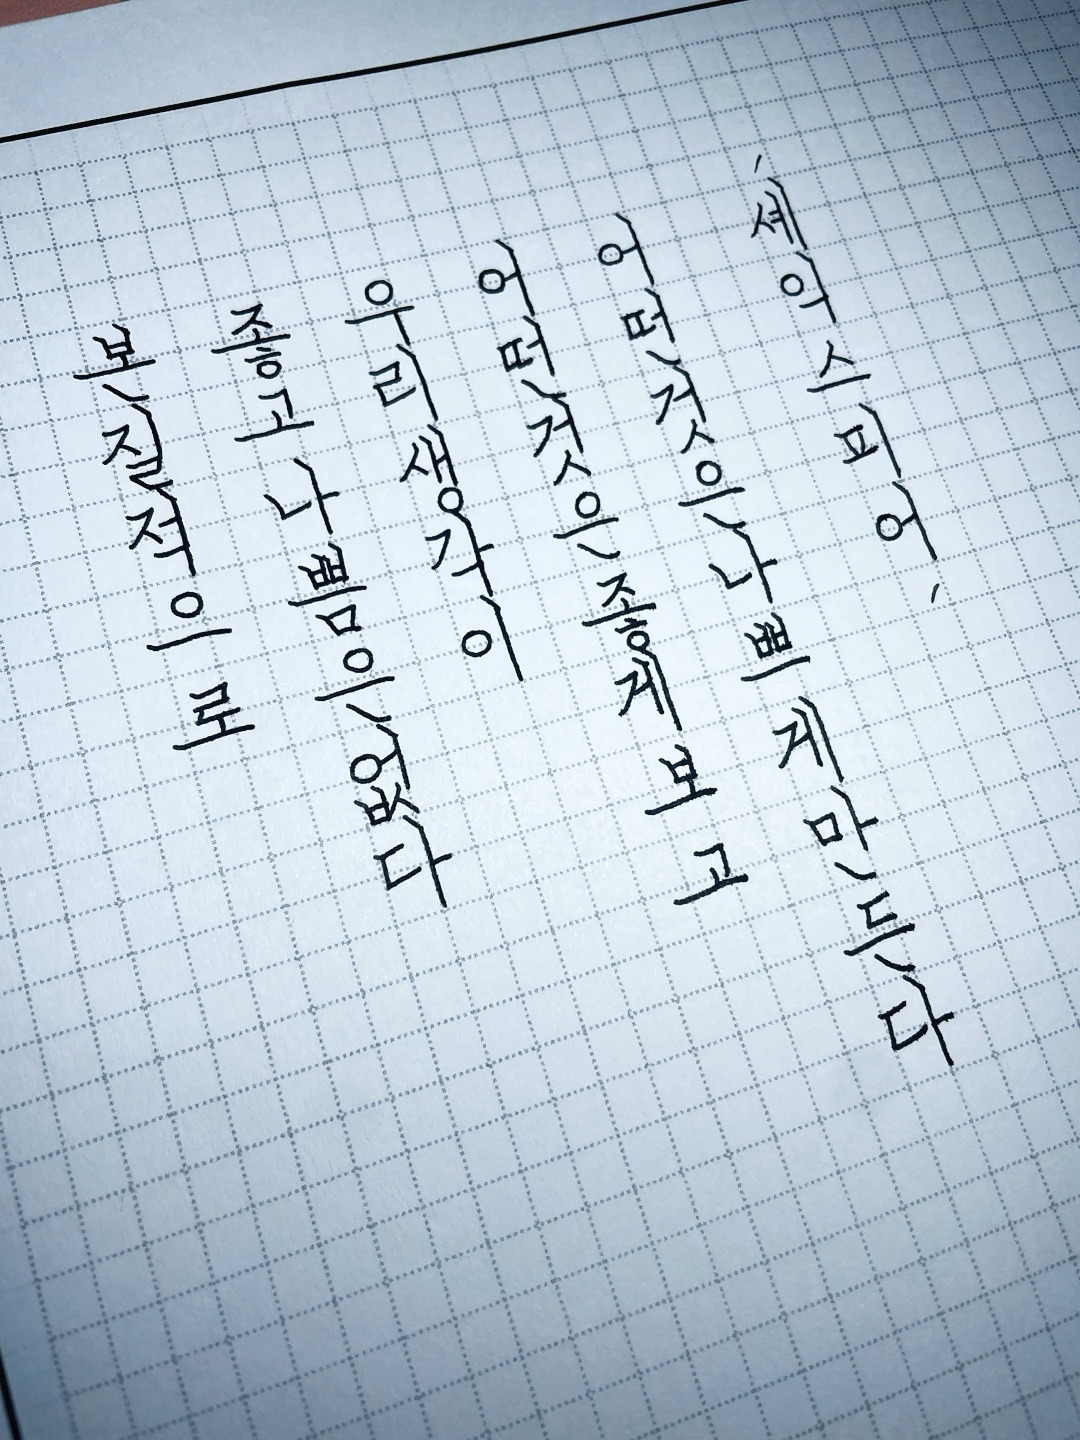 본질적으로
좋고 나쁨은 없다
우리 생각이
어떤 것은 좋게 보고
어떤 것은 나쁘게 만든다
'셰익스피어'